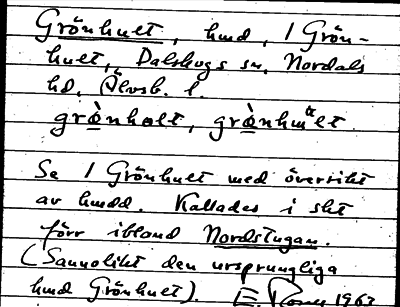 Grönhult, hmd, 1 Grön-
hult, Dalskogs sn, Nordals
hd, Älvsb. l.
grò̱nhølt, grò̱nhult
Se 1 Grönhult med översikt
av hmdd. Kallades i sht
förr ibland Nordstugan.
(Sannolikt den ursprungliga
hmd Grönhult). 1963